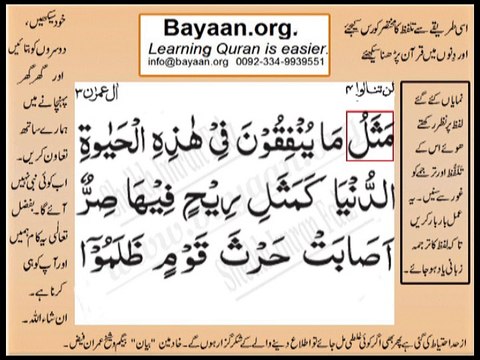 Bayaan.org.
Learning Quran is easier.
info@bayaan.org 0092-334-9939551
اسی طریقے سے تلفظ کا مختصر کورس کیجئے
اور دنوں میں قرآن پڑھنا سیکھئے
لن تنالوا ۴
اٰل عمرٰن ۳
مَثَلُ مَا يُنْفِقُوْنَ فِیْ هٰذِهِ الْحَيٰوةِ
الدُّنْيَا كَمَثَلِ رِيْحٍ فِيْهَا صِرٌّ
اَصَابَتْ حَرْثَ قَوْمٍ ظَلَمُوْٓا
نمایاں کئے گئے
لفظ پر نظر رکھتے
ھوئے اس کے
تلفظ اور ترجمے کو
غور سے سنیں۔ یہ
عمل بار بار کریں
تاکہ لفظ کا ترجمہ
زبانی یاد ہو جائے۔
خود سیکھیں،
دوسروں کو بتائیں
اور گھر گھر
پہنچانے میں
ہمارے ساتھ
تعاون کریں۔
اب کوئی نبی نہیں
آئے گا۔ بفضل
تعالٰی یہ کام ہمیں
اور آپ کو ہی
کرنا ہے۔
ان شاء اللہ۔
از حد احتیاط کی گئی ہے پھر بھی اگر کوئی غلطی مل جائے تو اطلاع دینے والے کے شکر گزار ہوں گے۔ خادمین "بیان" بیگم و شیخ عمران فیض۔